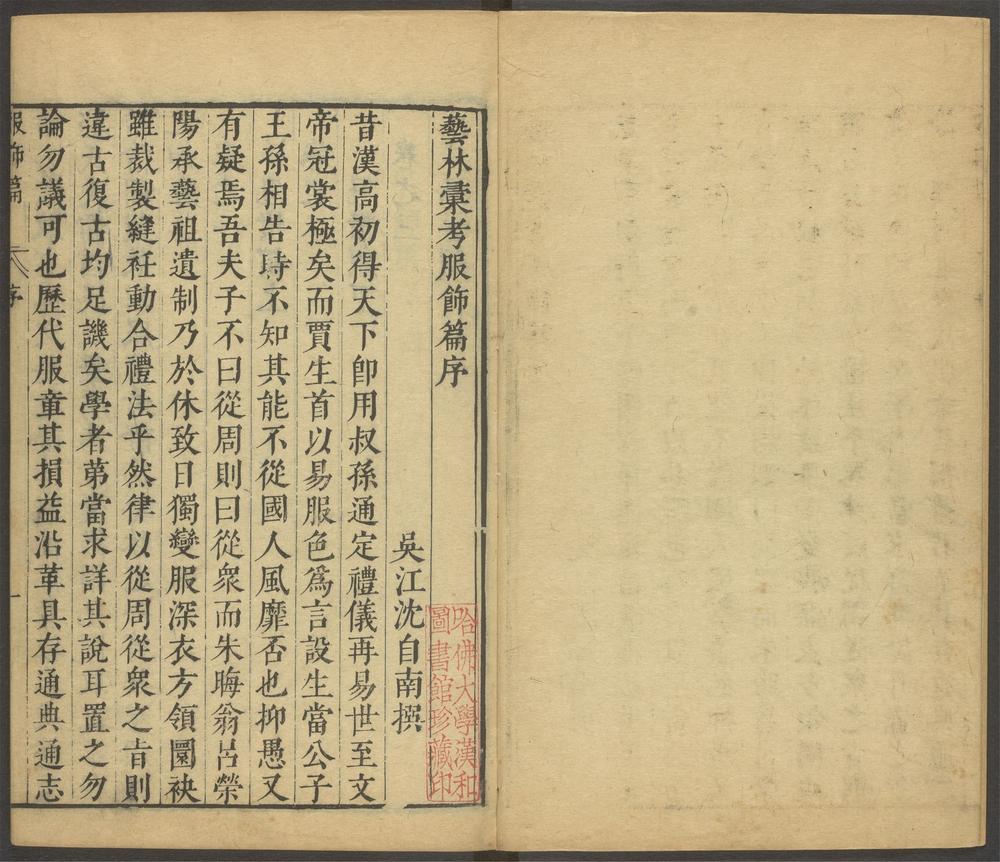 藝林彚考服飾篇序
吳江沈自南撰
昔漢高初得天下卽用叔孫通定禮儀再易世至文
帝冠裳極矣而賈生首以易服色爲言設生當公子
王孫相告時不知其能不從國人風靡否也抑愚又
有疑焉吾夫子不曰從周則曰從衆而朱晦翁呂榮
陽承藝祖遺制乃於休致日獨變服深衣方領圜袂
雖裁製縫袵動合禮法乎然律以從周從衆之旨則
違古復古均足譏矣學者苐當求詳其說耳置之勿
論勿議可也歷代服章其損益沿革具存通典通志
服飾篇 序 一
哈佛大學漢和
圖書館珍藏印